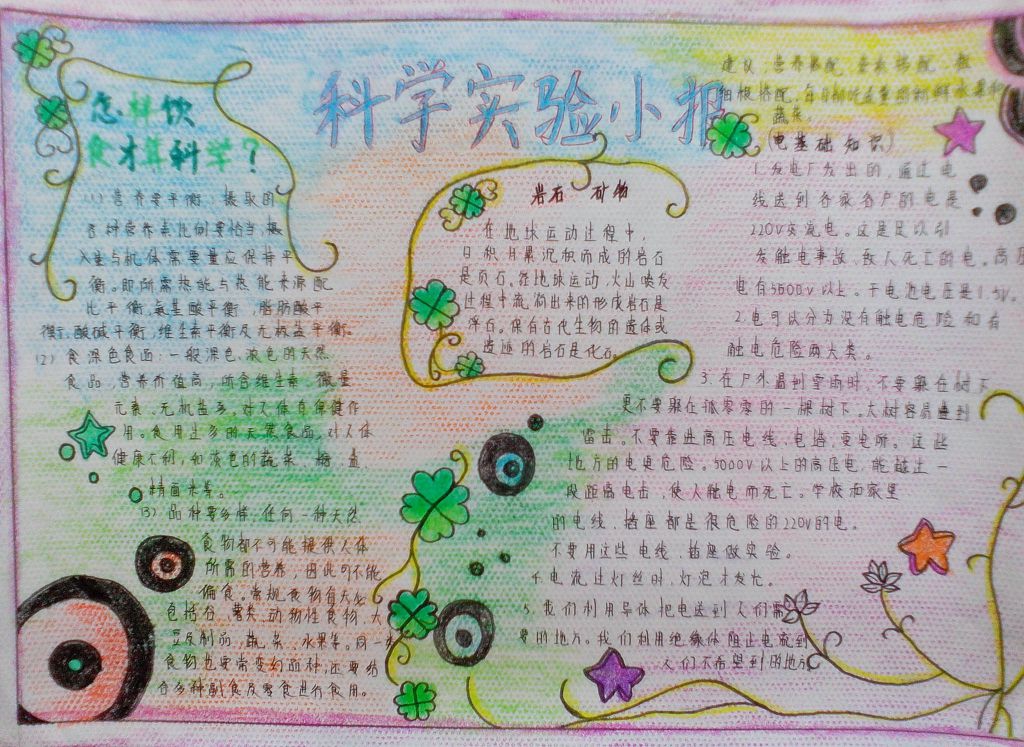 科学实验小报
怎样饮
食才算科学？
(1)营养要平衡：摄取的
各种营养素比例要恰当,摄
入量与机体需要量应保持平
衡。即所需热能与热能来源配
比平衡,氨基酸平衡,脂肪酸平
衡,酸碱平衡,维生素平衡及无机盐平衡。
(2)食深色食面：一般深色、浓色的天然
食品,营养价值高,所含维生素、微量
元素、无机盐多,对人体有保健作
用。食用过多的天然食品,对人体
健康不利,如淡色的蔬菜、糖、盐、
精面米等。
(3)品种要多样,任何一种天然
食物都不可能提供人体
所需的营养,因此可不能
偏食。常规食物有大
包括谷、薯类、动物性食物、大
豆及制品,蔬菜、水果等。同一
食物也要常变幻面种,还要
合多种副食及零食进行食用。
岩石 矿物
在地球运动过程中,
日积月累沉积而成的岩石
是页石。在地球运动,火山喷发
过程中流淌出来的形成岩石是
浮石。保有古代生物的遗体或
遗迹的岩石是化石。
建议：营养搭配,荤素搭配,粗
细粮搭配,每日都吃适量的新鲜水果和
蔬菜。
(电基础知识)
1.发电厂发出的,通过电
线送到各家各户的电是
220V交流电。这是足以引
发触电事故,致人死亡的电。高压
电有5000V以上。干电池电压是1.5V。
2.电可以分为没有触电危险和有
触电危险两大类。
3.在户外遇到雷雨时,不要聚在树下,
更不要聚在孤零零的一棵树下。大树容易遭到
雷击。不要靠近高压电线、电塔、变电所。这些
地方的电更危险。5000V以上的高压电,能越过一
段距离电击,使人触电而死亡。学校和家里
的电线、插座都是很危险的220V的电。
不要用这些电线、插座做实验。
4.电流过灯丝时,灯泡才发光。
5.我们利用导体把电送到人们需
要的地方。我们利用绝缘体阻止电流到
人们不希望到的地方。